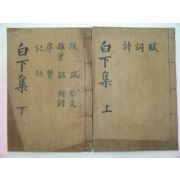 賦
詞
詩
白下集 上
跋 祭文
雜著 銘 附錄
序 贊
記 頌
白下集 下